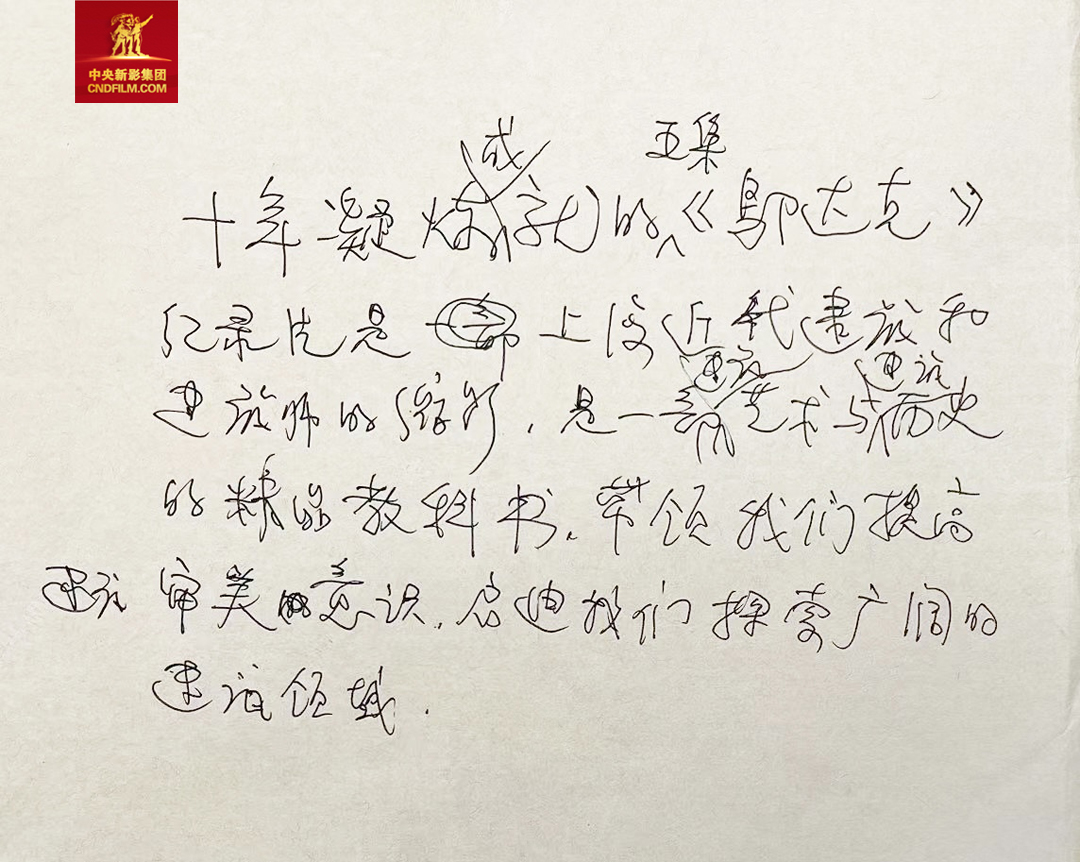 中央新影集团
CNDFILM.COM
成 五集
十年凝炼就的《邬达克》
纪录片是上海近代建筑和
建筑 建筑
建筑师的缩影,是一部艺术与历史
的精品教科书,带领我们提高
建筑审美的意识,启迪我们探索广阔的
建筑领域.